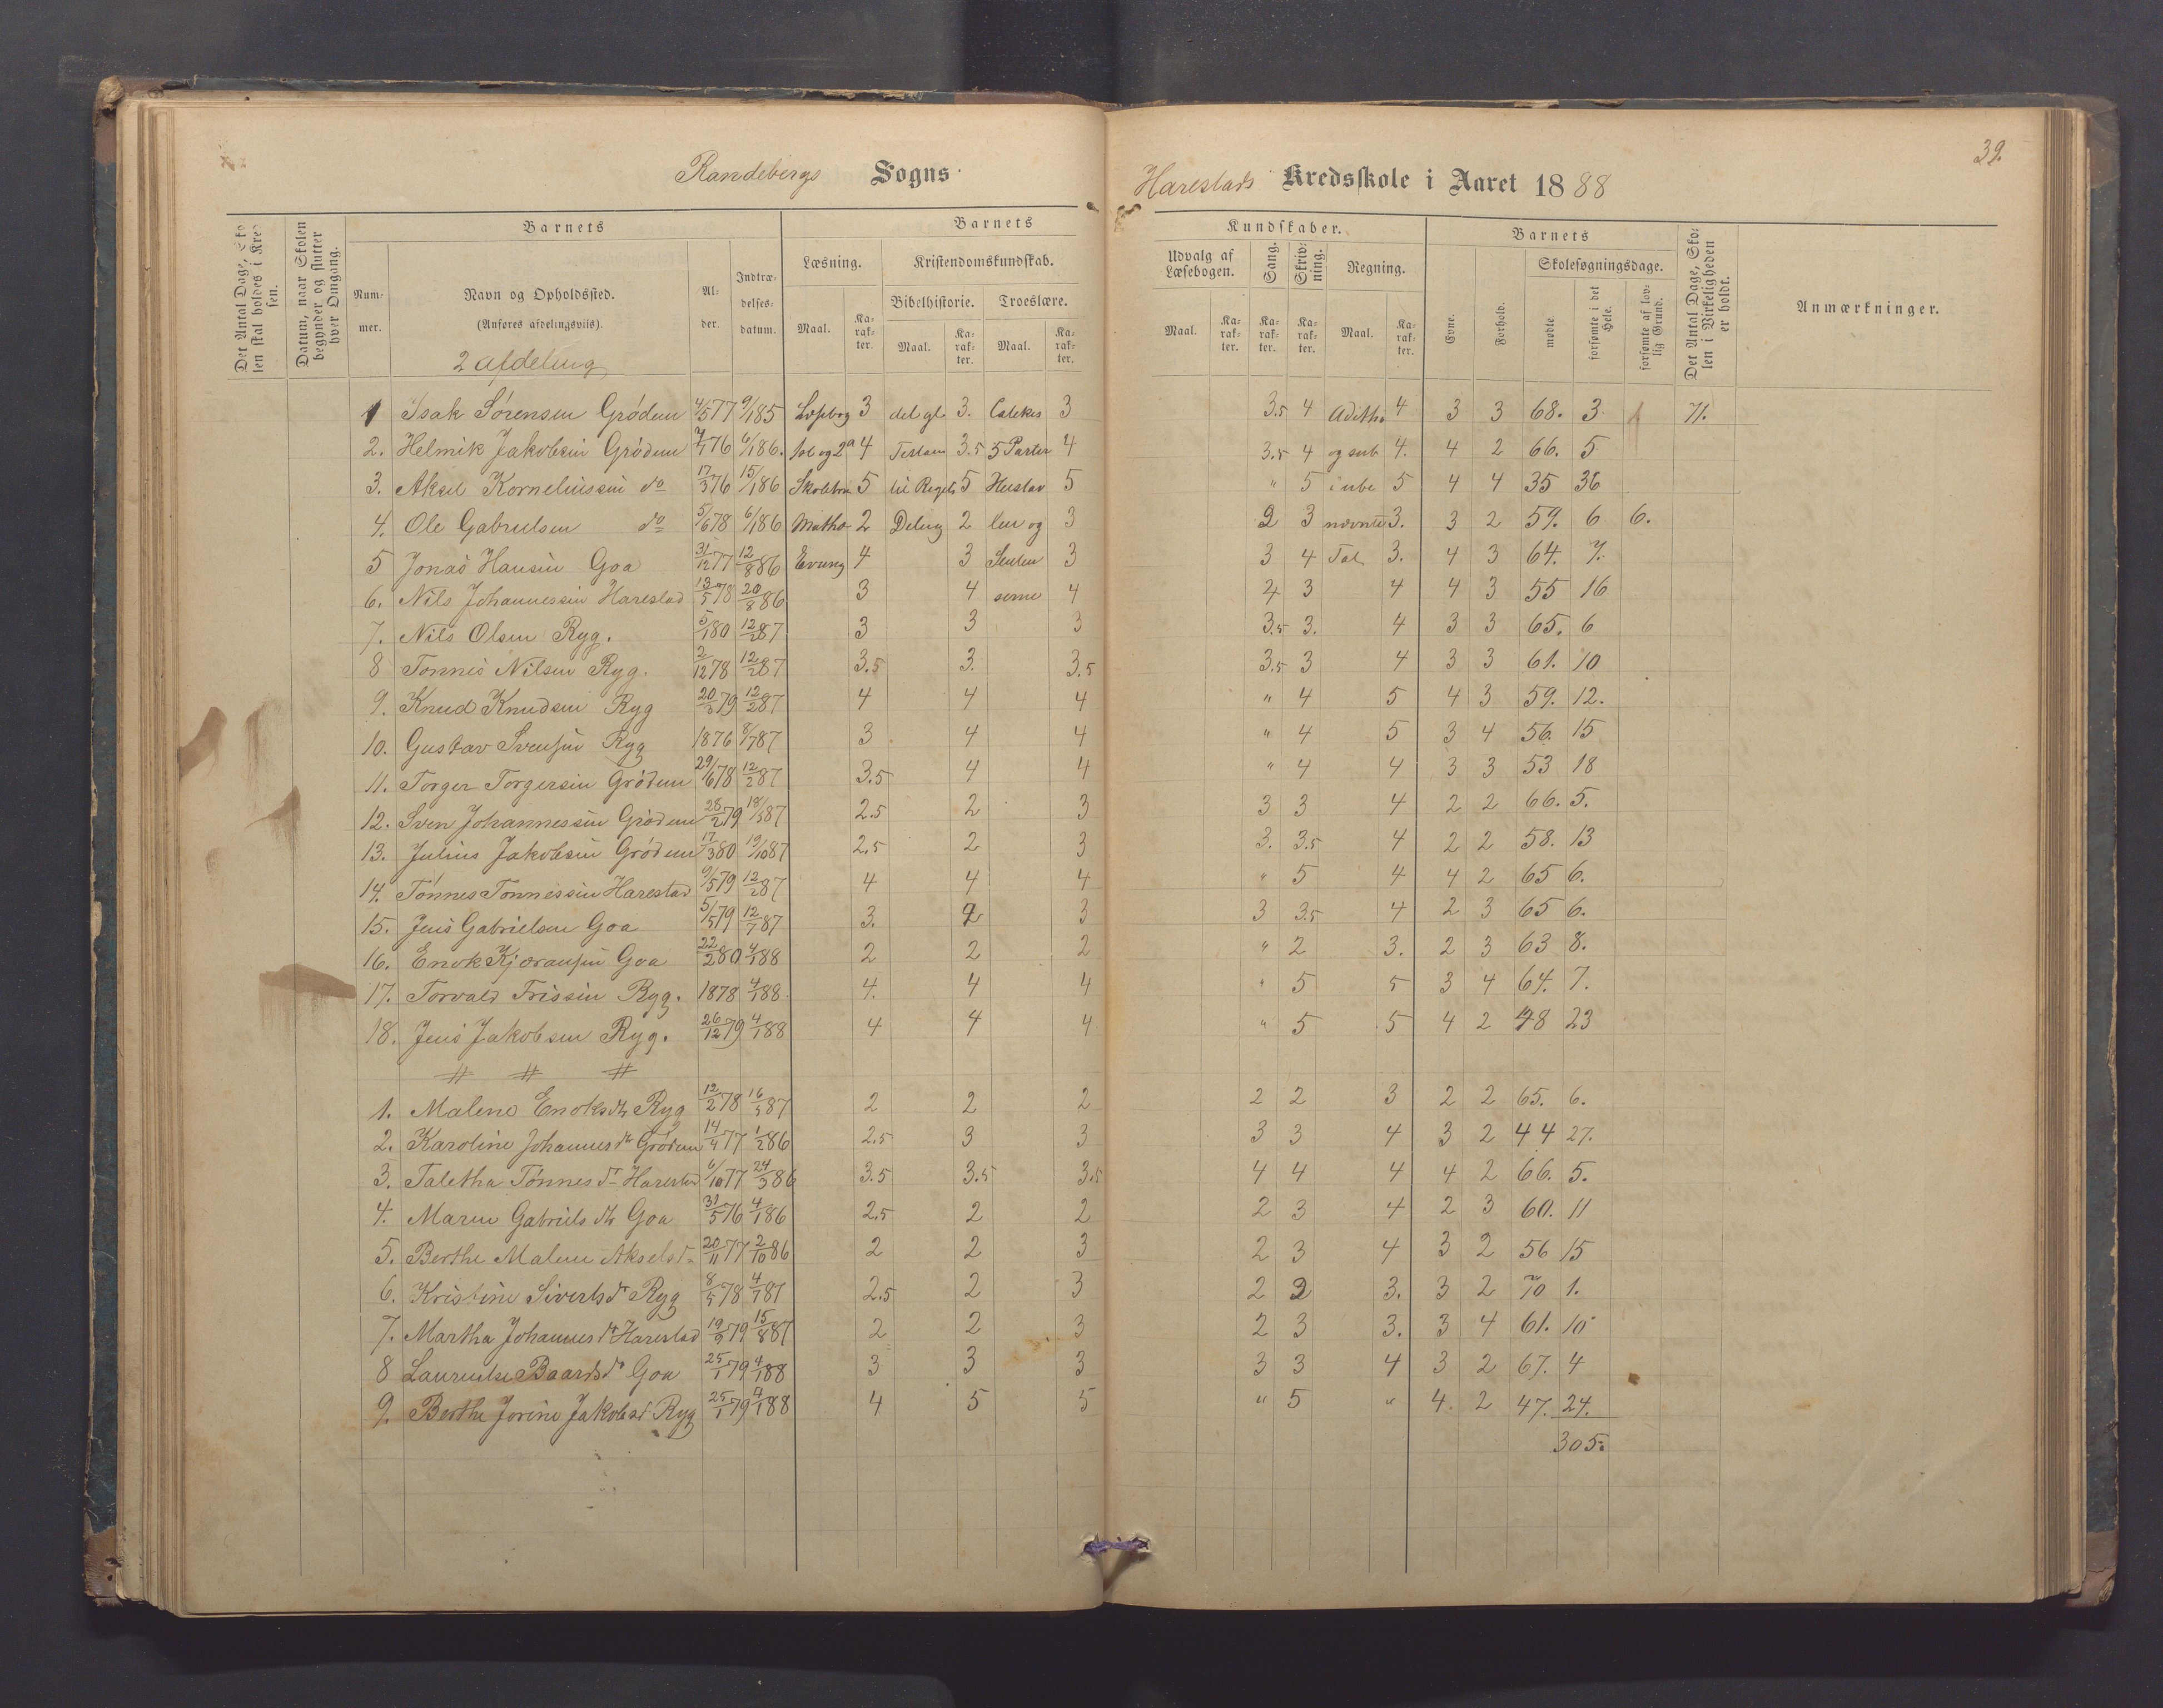 39.
Randebergs Sogns
Harestads Kredsskole i Aaret 1888
Det Antal Dage, Skolen skal holdes i Kredsen.
Datum, naar Skolen begynder og slutter hver Omgang.
Barnets
Nummer.
Navn og Opholdssted.
(Anføres afdelingsvils).
2 Afdeling
Alder.
Indtrædelsesdatum.
Barnets
Læsning.
Maal.
Karakter.
Kristendomskundskab.
Bibelhistorie.
Maal.
Karakter.
Troeslære.
Maal.
Karakter.
Kundskaber.
Udvalg af Læsebogen.
Maal.
Karakter.
Sang.
Karakter.
Skrivning.
Karakter.
Regning.
Maal.
Karakter.
Barnets
Evne.
Forhold.
Skolesøgningsdage.
mødte.
forsømte i det Hele.
forsømte af lovlig Grund.
Det Antal Dage, Skolen i Virkeligheden er holdt.
Anmærkninger.
1 Isak Sørensen Grødem 4/5 77 9/1 85 3 del gl. 3. 3 3.5 4 4 3 3 68. 3 71.
2. Helmik Jakobsen Grødem 76 6/1 86. 4 3.5 5 Parter 4 3.5 4 og sub 4. 4 2 66. 5
3. Aksel Korneliussen do 17/3 76 15/1 86 5 5 Hustav 5 " 5 i ube 5 4 4 35 36
4. Ole Gabrielsen do 5/6 78 6/1 86 2 2 og 3 2 3 nævnte 3. 3 2 59. 6 6.
5 Jonas Hansen Goa 31/12 77 12/8 86 4 3 3 3 4 Tal 3. 4 3 64. 7.
6. Nils Johannessen Harestad 13/5 78 20/8 86 3 4 serne 4 4 3 4 4 3 55 16
7. Nils Olsen Ryg. 5/1 80 12/2 87 3 3 3 3.5 3. 4 3 3 65. 6
8 Tønnes Nilsen Ryg. 2/12 78 12/2 87 3.5 3. 3.5 3.5 3 4 3 3 61. 10
9. Knud Knudsen Ryg 20/3 79 12/2 87 4 4 4 " 4 5 4 3 59. 12.
10. Gustav Svensen Ryg 1876 8/7 87 3 4 4 " 4 5 3 4 56. 15
11. Torger Torgersen Grødem 29/6 78 12/2 87 3.5 4 4 " 4 4 3 3 53 18
12. Sven Johannessen Grødem 28/2 79 18/3 87 2.5 2 3 3 3 4 2 2 66. 5.
13. Julius Jakobsen Grødem 17/3 80 19/10 87 2.5 2 3 3. 3.5 4 2 2 58. 13
14. Tønnes Tønnessen Harestad 9/5 79 12/2 87 4 4 4 " 5 4 4 2 65 6.
15. Jens Gabrielsen Goa 5/5 79 12/7 87 3. 2 3 3 3.5 4 2 3 65 6.
16. Enok Goa 22/2 80 4/1 88 2 2 2 " 2 3. 2 3 63 8.
17. Torvald Ryg. 1878 4/1 88. 4. 4 4 " 5 5 3 4 64. 7.
18. Jens Jakobsen Ryg. 26/12 79 4/1 88 4 4 4 " 5 5 4 2 48 23
# # #
1. Malene Enoksdtr Ryg 12/2 78 16/3 87 2 2 2 2 2 3 2 2 65. 6.
2. Karoline Johannesdtr Grødem 14/4 77 1/2 86 2.5 3 3 3 3 4 3 2 44 27.
3. Taletha Tønnesdtr Harestad 6/10 77 24/3 86 3.5 3.5 3.5 4 4 4 4 2 66. 5.
4. Maren Gabrielsdtr Goa 31/5 76 4/1 86 2.5 2 2 2 3 4 2 3 60. 11
5. Berthe Malene Akselsdtr 20/11 77 2/10 86 2 2 3 2 3 4 3 2 56 15
6. Kristine Sivertsdtr Ryg 8/5 78 4/7 87 2.5 2 3 2 2 3. 3 2 70 1.
7. Martha Johannesdtr Harestad 19/9 79 15/8 87 2 2 3 2 3 3. 3 4 61. 10
8 Baardsdtr Goa 25/1 79 4/1 88 3 3 3 3 3 4 3 2 67. 4
9. Berthe Jorine Jakobsdtr Ryg 25/1 79 4/1 88 4 5 5 " 5 " 4. 2 47. 24.
305.